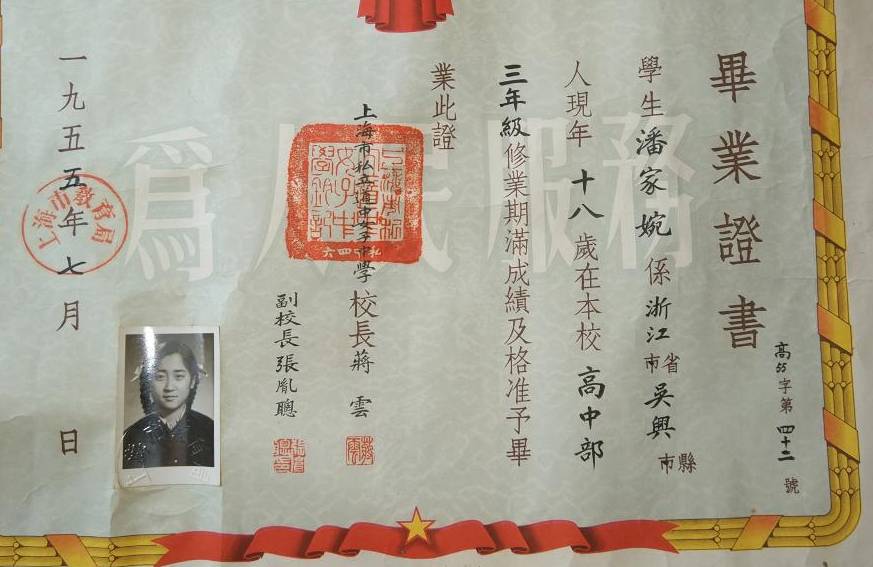 畢業證書
高55字第四十二號
學生潘家婉係浙江省市吳興縣市
人現年十八歲在本校高中部
三年級修業期滿成績及格准予畢
業此證
為人民服務
校長蔣雲
副校長張胤聰
一九五五年七月日
上海市教育局